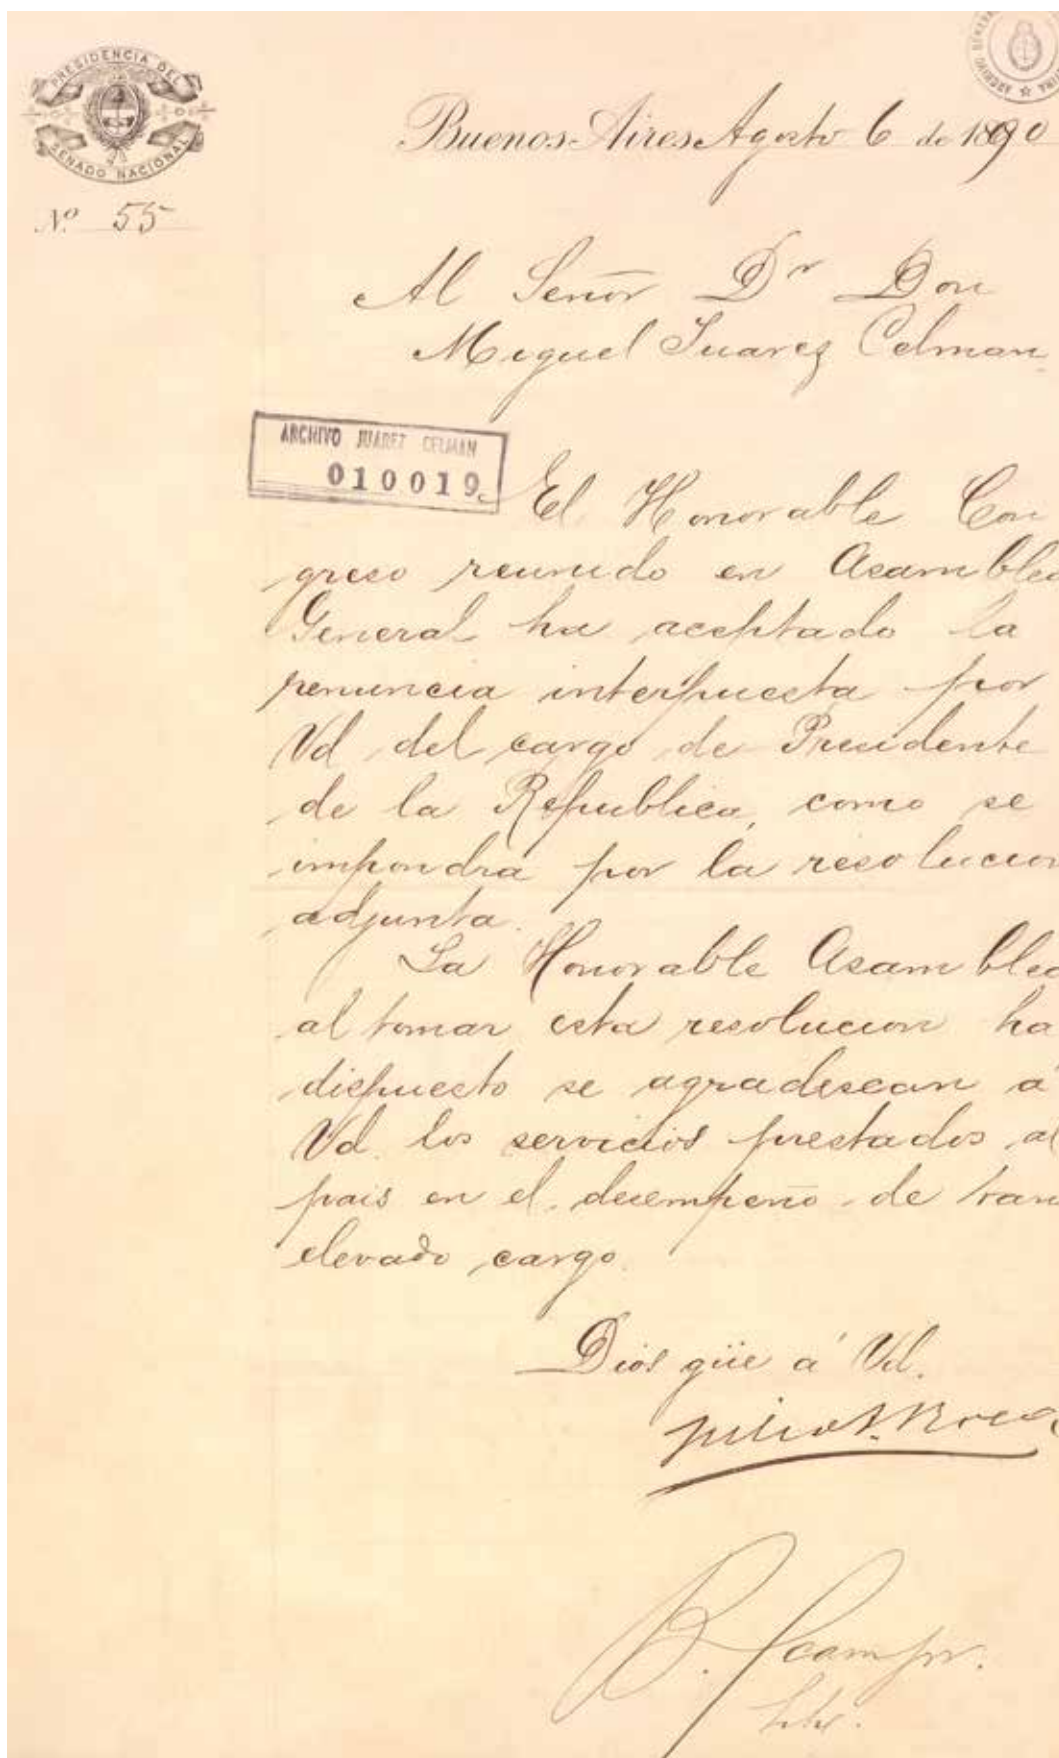 PRESIDENCIA DEL
SENADO NACIONAL
Nº 55
Buenos-Aires Agosto 6 de 1890
Al Señor Dr Don
Miguel Juarez Celman
ARCHIVO JUAREZ CELMAN
010019
El Honorable Con
greso reunido en Asamblea
General ha aceptado la
renuncia interpuesta por
Vd del cargo de Presidente
de la Republica, como se
impondrá por la resolucion
adjunta.
La Honorable Asamblea
al tomar esta resolucion ha
dispuesto se agradescan á
Vd. los servicios prestados al
pais en el desempeño de tan
elevado cargo.
Dios güe á Vd.
Julio A. Roca
B. Ocampo.